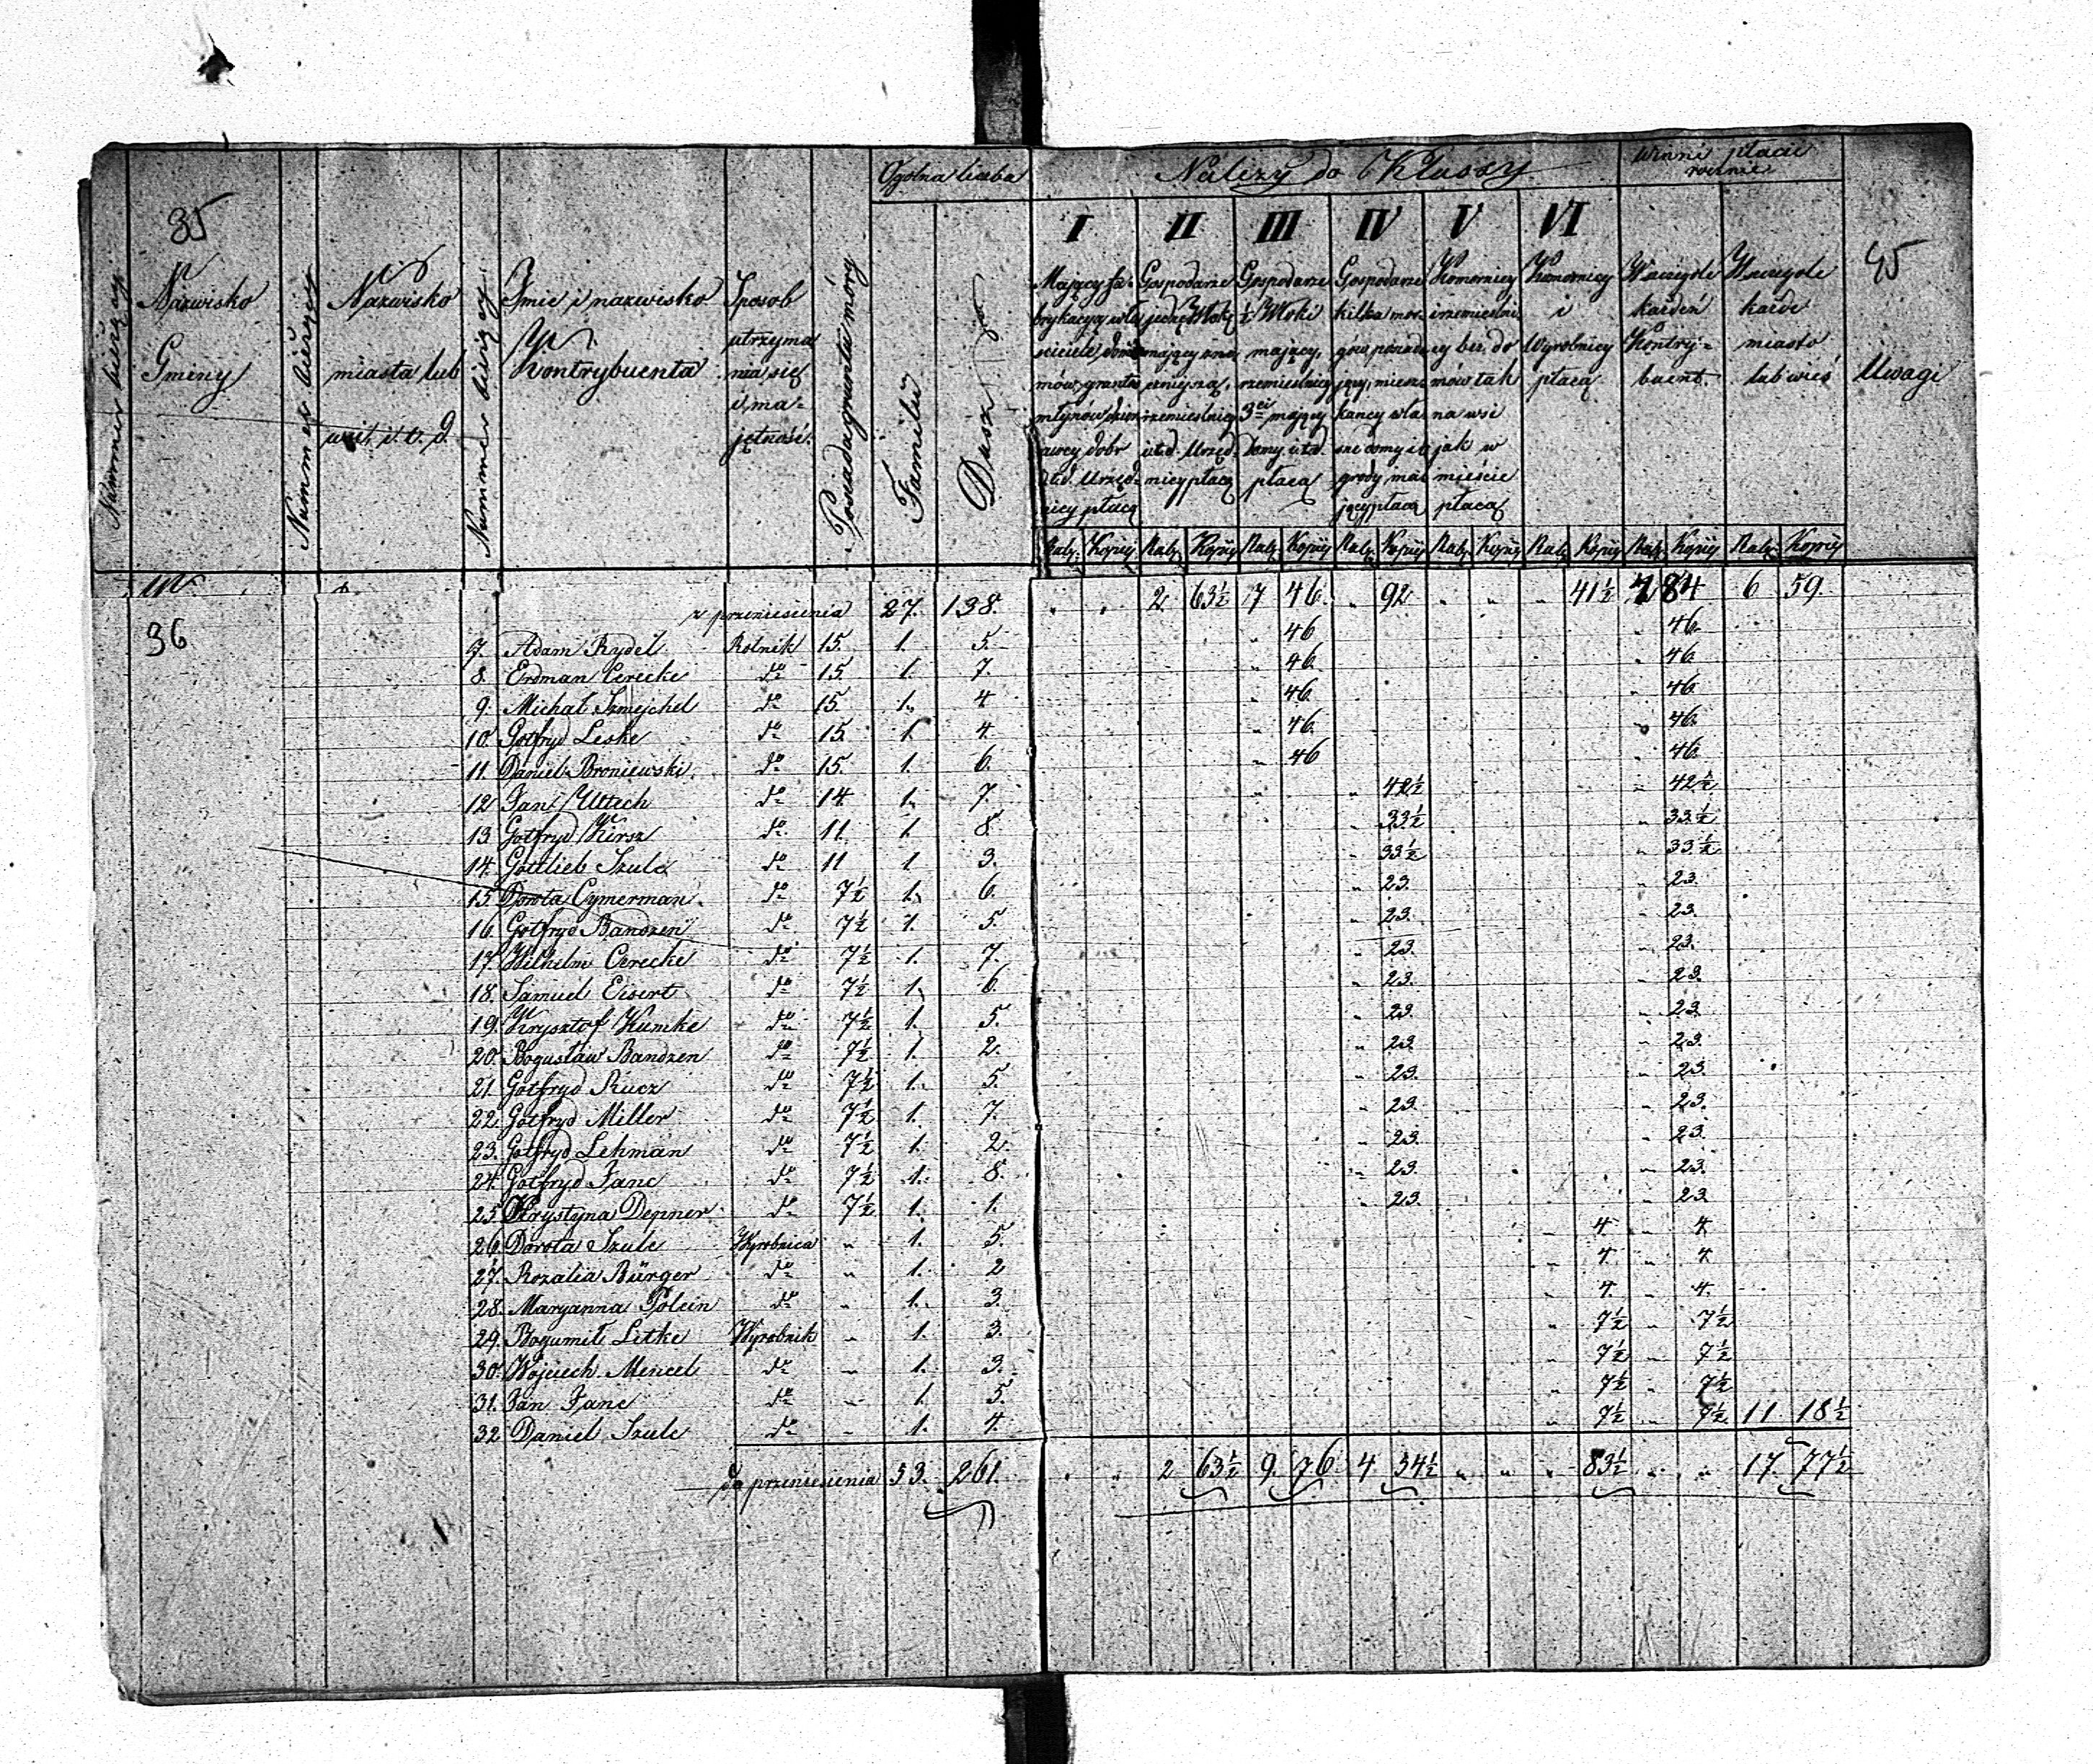 35
45
Nummer bieżący
Nazwisko Gminy
Nummer bieżący
Nazwisko miasta lub wsi i. t. d.
Nummer bieżący
Imie i nazwisko Kontrybuenta
Sposob utrzyma nia się i ma= jętność.
Posiada gruntu mórg
Ogolna liczba
Familii
Dusz
Należy do Klassy
I
II
III
IV
V
VI
Gospodarze
Gospodarze ½ Włoki mający, rzemieślnicy 3ci mający Domy i t d. płacą
Gospodarze kilka mor=
Komornicy i rzemieślni cy bez do mów tak na wsi jak w mieście płacą
Komornicy i Wyrobnicy płacą
Winni płacić rocznie
W ogóle każden Kontry= buent.
W ogóle każde miasto lub wieś
Uwagi
Rub. Kopiej Rub. Kopiej Rub. Kopiej Rub. Kopiej Rub. Kopiej Rub. Kopiej Rub. Kopiej Rub. Kopiej
z przeniesienia 27. 138. " " 2 63½ 7 46. " 92 " " " 41½ 84 6 59.
36
7. Adam Rydel Rolnik 15. 1. 5. " 46 " 46.
8. Erdman Cerecke do 15. 1. 7. " 46. " 46.
9. Michał Szmejchel do 15. 1. 4 " 46. " 46.
10. Gotfryd Leske do 15. 1. 4. " 46. " 46.
11. Daniel Broniewski do 15. 1. 6. " 46 " 46.
12 Jan Uttech do 14. 1. 7. " 42½ " 42½
13. Gotfryd Kirsz do 11. 1. 8. " 33½ " 33½
14. Gottlieb Szulc do 11 1. 3. " 33½ " 33½
15. Dorota Cymerman do 7½ 1. 6. " 23. " 23.
16. Gotfryd Bandzen do 7½ 1. 5. " 23. " 23.
17. Wilhelm Cerecke do 7½ 1. 7. " 23. " 23.
18. Samuel Eisert do 7½ 1. 6. " 23. " 23.
19. Krysztof Kumke do 7½ 1. 5. " 23. " 23.
20. Bogusław Bandzen do 7½ 1. 2. " 23 " 23.
21. Gotfryd Rucz do 7½ 1. 5. " 23. " 23.
22. Gotfryd Miller do 7½ 1. 7. " 23. " 23.
23. Gotfryd Lehman do 7½ 1. 2. " 23. " 23.
24. Gotfryd Janc do 7½ 1. 8. " 23. " 23.
25 Krystyna Depner do 7½ 1. 1. " 23. " 23
26. Dorota Szulc Wyrobnica " 1. 5. " 4 " 4
27. Rozalia Bürger do " 1. 2 " 4. " 4
28. Maryanna Polcin do " 1. 3. " 4. " 4.
29. Bogumił Litke Wyrobnik " 1. 3. " 7½ " 7½
30. Wojciech Mencel do " 1. 3. " 7½ " 7½
31. Jan Janc do " 1. 5. " 7½ " 7½
32 Daniel Szulc do " 1. 4. " 7½ " 7½ 11 18½
do przeniesienia 53. 261. " " 2 63½ 9. 76. 4 34½ " " " 83½ " " 17. 77½